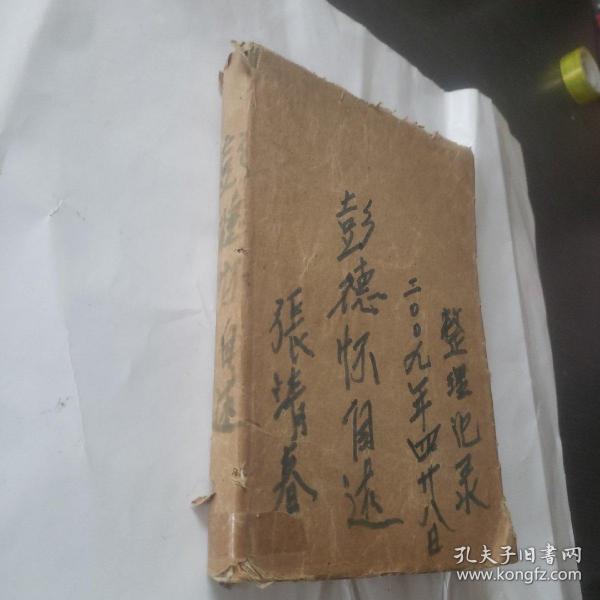 整理记录
二〇〇九年四廿八日
彭德怀自述
張清春
彭德怀自述
孔夫子旧書网
www.kongfz.com